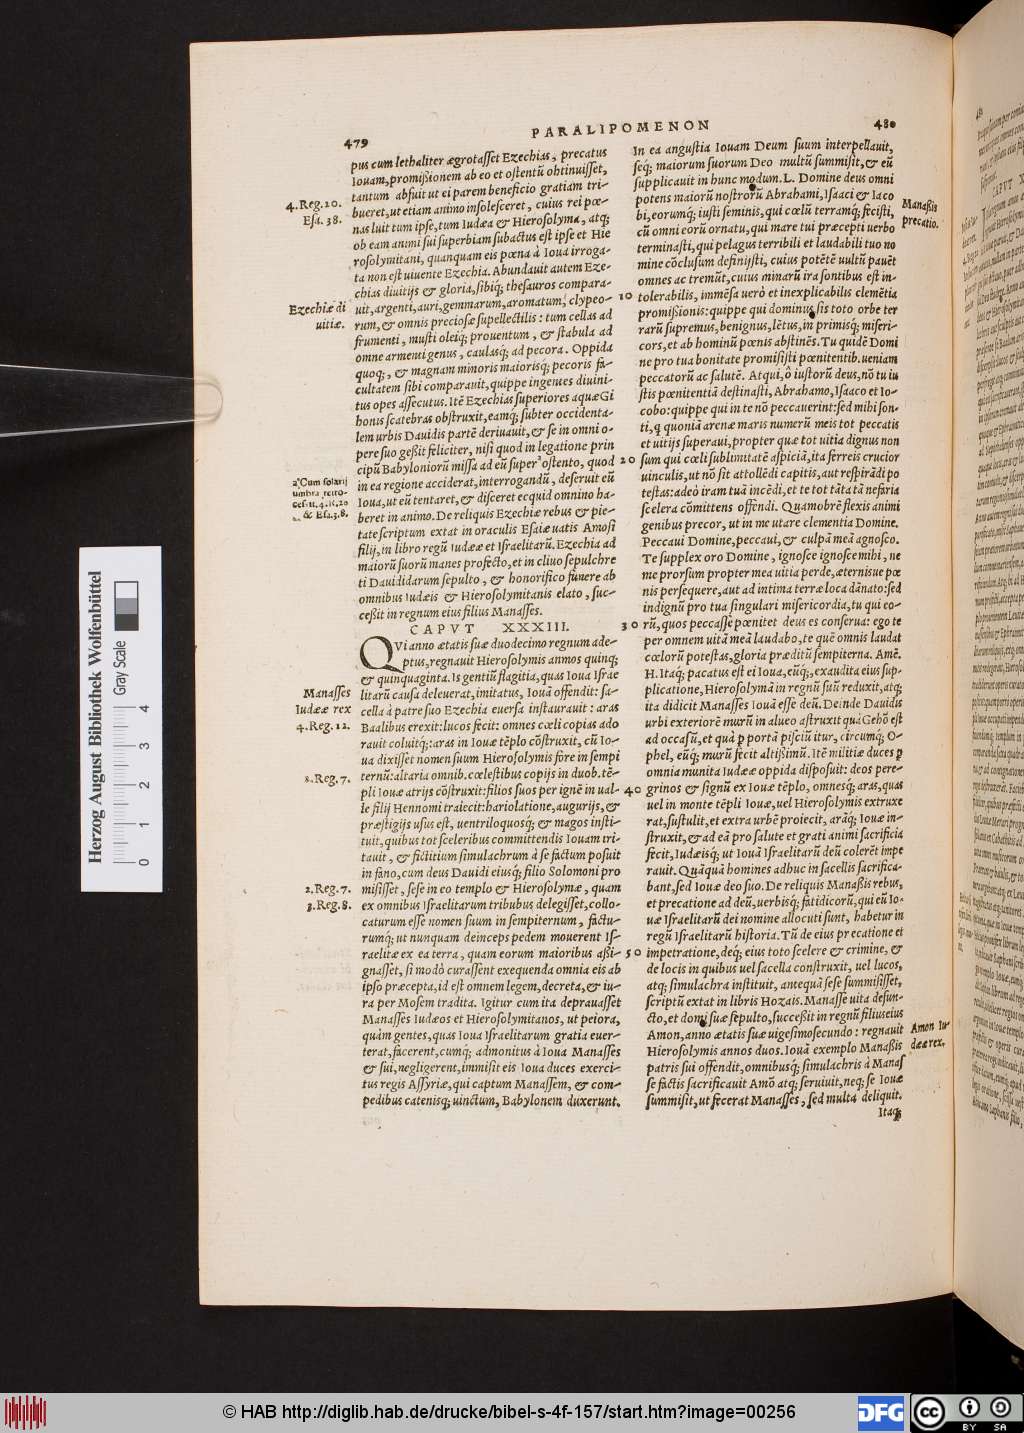 PARALIPOMENON
479
480
pus cum lethaliter ægrotaſſet Ezechias, precatus
Iouam, promiſsionem ab eo et oſtentū obtinuiſſet,
tantum abfuit ut ei parem beneficio gratiam tri-
bueret, ut etiam animo inſoleſceret, cuius rei pœ-
nas luit tum ipſe, tum Iudæa & Hieroſolyma, atq;
ob eam animi ſui ſuperbiam ſubactus eſt ipſe et Hie
roſolymitani, quanquam eis pœna à Ioua irroga-
ta non eſt uiuente Ezechia. Abundauit autem Eze-
chias diuitijs & gloria, ſibiq; theſauros compara-
uit, argenti, auri, gemmarum, aromatum, clypeo-
rum, & omnis precioſæ ſupellectilis: tum cellas ad
frumenti, muſti oleiq; prouentum, & ſtabula ad
omne armenti genus, caulasq; ad pecora. Oppida
quoq;, & magnam minoris maiorisq; pecoris fa-
cultatem ſibi comparauit, quippe ingentes diuini-
tus opes aſſecutus. Itē Ezechias ſuperiores aquæ Gi
honis ſcatebras obſtruxit, eamq; ſubter occidenta-
lem urbis Dauidis partē deriuauit, & ſe in omni o-
pere ſuo geßit feliciter, niſi quod in legatione prin
cipū Babyloniorū miſſa ad eū ſuper ᵃoſtento, quod
in ea regione acciderat, interrogandū, deſeruit eū
Ioua, ut eū tentaret, & diſceret ecquid omnino ha-
beret in animo. De reliquis Ezechiæ rebus & pie-
tate ſcriptum extat in oraculis Eſaiæ uatis Amoſi
filij, in libro regū Iudææ et Iſraelitarū. Ezechia ad
maiorū ſuorū manes profecto, et in cliuo ſepulchre
ti Dauididarum ſepulto, & honorifico funere ab
omnibus Iudæis & Hieroſolymitanis elato, ſuc-
ceßit in regnum eius filius Manaſſes.
CAPVT XXXIII.
QVi anno ætatis ſuæ duodecimo regnum ade-
ptus, regnauit Hieroſolymis annos quinq;
& quinquaginta. Is gentiū flagitia, quas Ioua Iſrae
litarū cauſa deleuerat, imitatus, Iouā offendit: ſa-
cella à patre ſuo Ezechia euerſa inſtaurauit: aras
Baalibus erexit: lucos fecit: omnes cœli copias ado
rauit coluitq;: aras in Iouæ tēplo cōſtruxit, cū Io-
ua dixiſſet nomen ſuum Hieroſolymis fore in ſempi
ternū: altaria omnib. cœleſtibus copijs in duob. tē-
pli Iouæ atrijs cōſtruxit: filios ſuos per ignē in ual-
le filij Hennomi traiecit: hariolatione, augurijs, &
præſtigijs uſus eſt, uentriloquosq; & magos inſti-
tuit, quibus tot ſceleribus committendis Iouam tri-
tauit, & fictitium ſimulachrum à ſe factum poſuit
in fano, cum deus Dauidi eiusq; filio Solomoni pro
miſiſſet, ſeſe in eo templo & Hieroſolymæ, quam
ex omnibus Iſraelitarum tribubus delegiſſet, collo-
caturum eſſe nomen ſuum in ſempiternum, factu-
rumq; ut nunquam deinceps pedem mouerent Iſ-
raelitæ ex ea terra, quam eorum maioribus aßi-
gnaſſet, ſi modò curaſſent exequenda omnia eis ab
ipſo præcepta, id eſt omnem legem, decreta, & iu-
ra per Moſem tradita. Igitur cum ita deprauaſſet
Manaſſes Iudæos et Hieroſolymitanos, ut peiora,
quàm gentes, quas Ioua Iſraelitarum gratia euer-
terat, facerent, cumq; admonitus à Ioua Manaſſes
& ſui, negligerent, immiſit eis Ioua duces exerci-
tus regis Aſſyriæ, qui captum Manaſſem, & com-
pedibus catenisq; uinctum, Babylonem duxerunt.
4. Reg. 20.
Eſa. 38.
Ezechiæ di
uitiæ.
a Cum ſolarij
umbra retro-
Manaſſes
Iudææ rex
4. Reg. 12.
2. Reg. 7.
2. Reg. 7.
3. Reg. 8.
In ea anguſtia Iouam Deum ſuum interpellauit,
ſeq; maiorum ſuorum Deo multū ſummiſit, & eū
ſupplicauit in hunc modum. L. Domine deus omni
potens maiorū noſtrorū Abrahami, Iſaaci & Iaco
bi, eorumq; iuſti ſeminis, qui cœlū terramq; feciſti,
cū omni eorū ornatu, qui mare tui præcepti uerbo
terminaſti, qui pelagus terribili et laudabili tuo no
mine cōcluſum definijſti, cuius potētē uultū pauēt
omnes ac tremūt, cuius minarū ira ſontibus eſt in-
10 tolerabilis, immēſa uerò et inexplicabilis clemētia
promiſsionis: quippe qui dominus ſis toto orbe ter
rarū ſupremus, benignus, lētus, in primisq; miſeri-
cors, et ab hominū pœnis abſtinēs. Tu quidē Domi
ne pro tua bonitate promiſiſti pœnitentib. ueniam
peccatorū ac ſalutē. Atqui, ô iuſtorū deus, nō tu iu
ſtis pœnitentiā deſtinaſti, Abrahamo, Iſaaco et Io-
cobo: quippe qui in te nō peccauerint: ſed mihi ſon-
ti, q̨ quoniā arenæ maris numerū meis tot peccatis
et uitijs ſuperaui, propter quæ tot uitia dignus non
20 ſum qui cœli ſublimitatē aſpiciā, ita ferreis crucior
uinculis, ut nō ſit attollēdi capitis, aut reſpirādi po
teſtas: adeò iram tuā incēdi, et te tot tāta tā nefaria
ſcelera cōmittens offēdi. Quamobrē flexis animi
genibus precor, ut in me utare clementia Domine.
Peccaui Domine, peccaui, & culpā meā agnoſco.
Te ſupplex oro Domine, ignoſce ignoſce mihi, ne
me prorſum propter mea uitia perde, æternisue pœ
nis perſequere, aut ad intima terræ loca dānato: ſed
indignū pro tua ſingulari miſericordia, tu qui eo-
30 rū, quos peccaſſe pœnitet deus es conſerua: ego te
per omnem uitā meā laudabo, te quē omnis laudat
cœlorū poteſtas, gloria præditū ſempiterna. Amē.
H. Itaq; pacatus eſt ei Ioua, eūq;, exaudita eius ſup-
plicatione, Hieroſolymā in regnū ſuū reduxit, atq;
ita didicit Manaſſes Iouā eſſe deū. Deinde Dauidis
urbi exteriorē murū in alueo aſtruxit quà Gehō eſt
ad occaſū, et quà p portā piſciū itur, circumq; O-
phel, eūq; murū fecit altißimū. Itē militiæ duces p
omnia munita Iudææ oppida diſpoſuit: deos pere-
40 grinos & ſignū ex Iouæ tēplo, omnesq; aras, quas
uel in monte tēpli Iouæ, uel Hieroſolymis extruxe
rat, ſuſtulit, et extra urbē proiecit, arāq; Iouæ in-
ſtruxit, & ad eā pro ſalute et grati animi ſacrificia
fecit, Iudæisq; ut Iouā Iſraelitarū deū colerēt impe
rauit. Quāquā homines adhuc in ſacellis ſacrifica-
bant, ſed Iouæ deo ſuo. De reliquis Manaßis rebus,
et precatione ad deū, uerbisq; fatidicorū, qui eū Io-
uæ Iſraelitarū dei nomine allocuti ſunt, habetur in
regū Iſraelitarū hiſtoria. Tū de eius precatione et
50 impetratione, deq; eius toto ſcelere & crimine, &
de locis in quibus uel ſacella conſtruxit, uel lucos,
atq; ſimulachra inſtituit, antequā ſeſe ſummiſiſſet,
ſcriptū extat in libris Hozais. Manaſſe uita defun-
cto, et domi ſuæ ſepulto, ſucceßit in regnū filius eius
Amon, anno ætatis ſuæ uigeſimoſecundo: regnauit
Hieroſolymis annos duos. Iouā exemplo Manaßis
patris ſui offendit, omnibusq; ſimulachris à Manaſ
ſe factis ſacrificauit Amō atq; ſeruiuit, neq; ſe Iouæ
ſummiſit, ut fecerat Manaſſes, ſed multa deliquit.
Itaq;
Manaßis
precatio.
Amon Iu-
dææ rex.
Herzog August Bibliothek Wolfenbüttel
Gray Scale
0 1 2 3 4
© HAB http://diglib.hab.de/drucke/bibel-s-4f-157/start.htm?image=00256
DFG
cc
BY SA